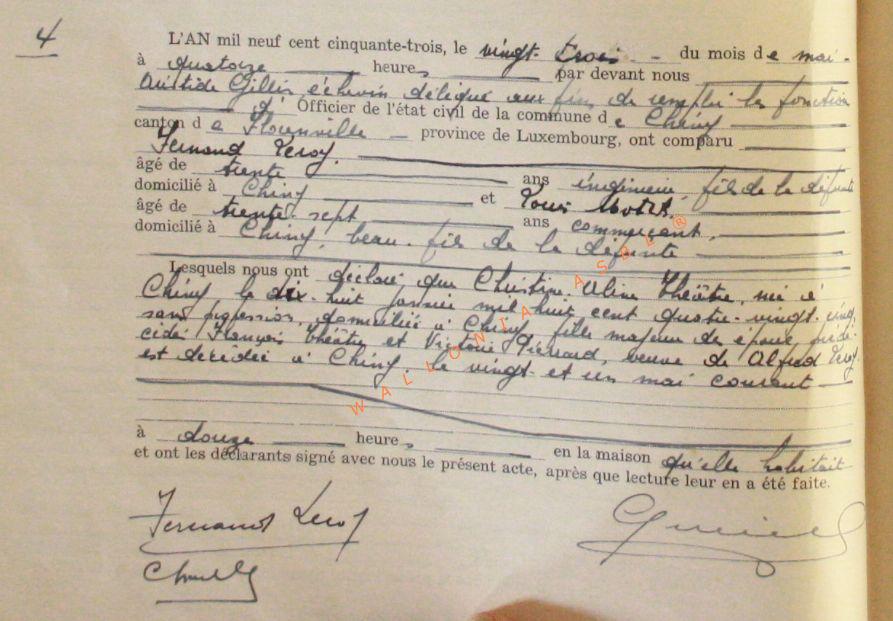 4
L'AN mil neuf cent cinquante-trois, le vingt-trois - du mois de mai -
à quatorze heures, par devant nous
Aristide Gillis échevin délégué aux fins de remplir les fonctions
d' Officier de l'état civil de la commune de Chiny
canton de Florenville - province de Luxembourg, ont comparu
Fernand Leroy,
âgé de trente ans ingénieur, fils de la défunte
domicilié à Chiny et Louis
âgé de trente-sept ans commerçant,
domicilié à Chiny, beau-fils de la défunte
Lesquels nous ont déclaré que Christine Aline Théâtre, née à
Chiny le dix-huit janvier mil huit cent quatre-vingt-cinq,
sans profession, domiciliée à Chiny, fille majeure de époux prédé-
cédés François Théâtre et Victorie Piérrard, veuve de Alfred Leroy
est décédée à Chiny, le vingt et un mai courant -
à douze heures, en la maison qu'elle habitait
et ont les déclarants signé avec nous le présent acte, après que lecture leur en a été faite.
Fernand Leroy
WALLONIA ASBL ®